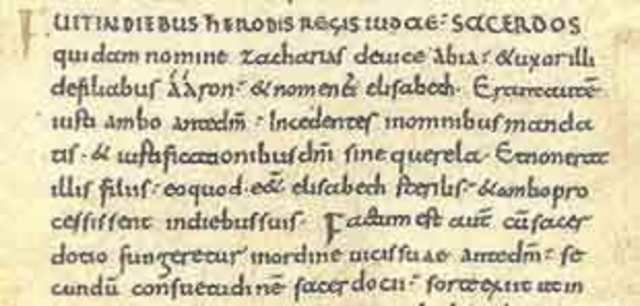 FUIT IN DIEBUS HERODIS REGIS IUDAE: SACERDOS
quidam nomine zacharias deuice abia: & uxor illi
defiliabus ááron: & nomen ei elisabeth. Erant autē
iusti ambo antedm̄: Incedentes inomnibus manda
tis. & iustificationibus dn̄i sine querela. Et non erat
illis filius: eo quod. e&̄ elisabeth sterilis: & ambo pro
cessissent indiebus suis. Factum est autē cū sacer
dotio fungeretur inordine uicissuae antedm̄: se
cundū consuetudinē sacerdotii: sorte exiit utin